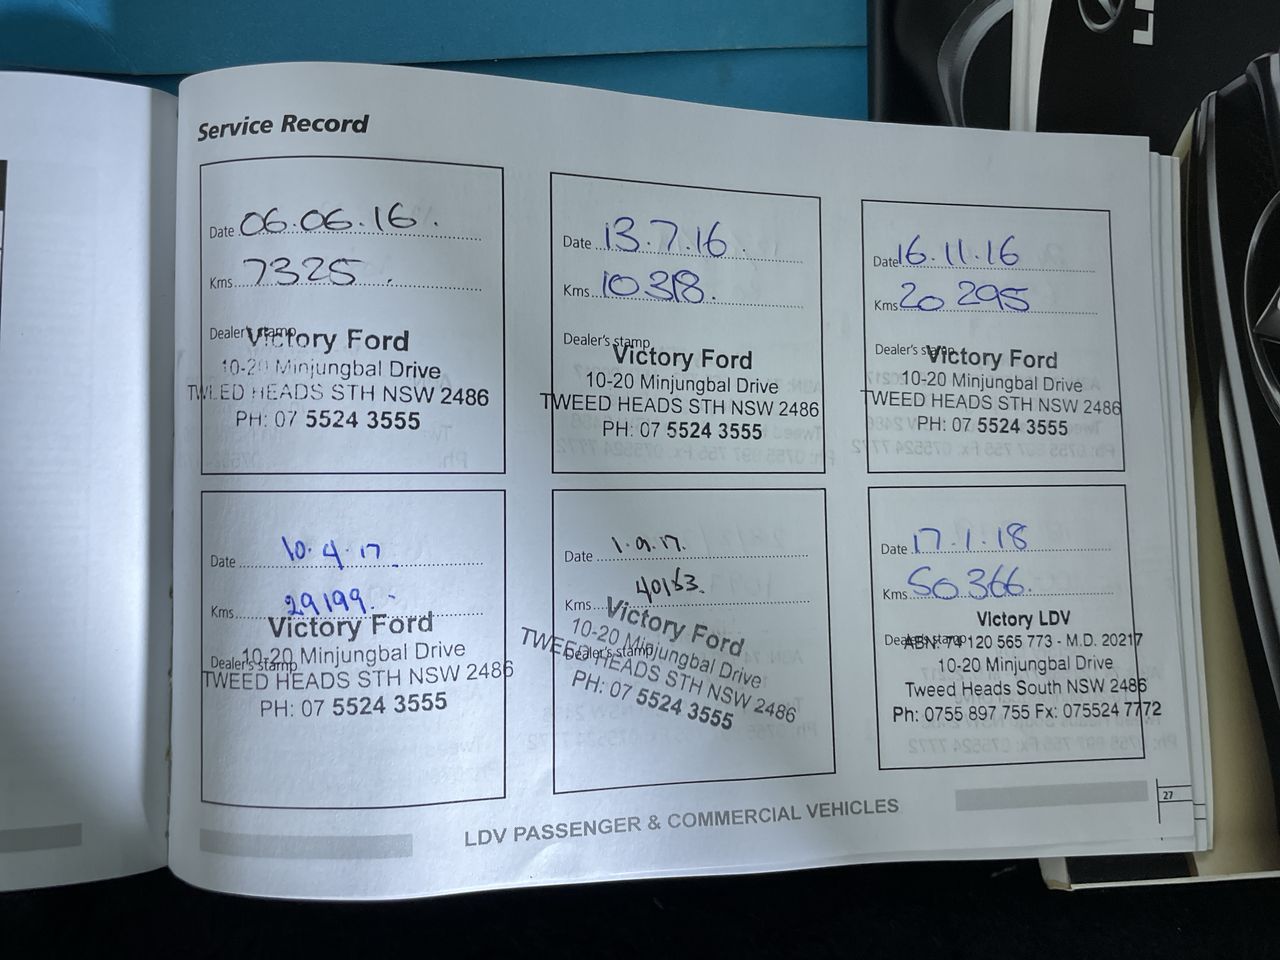 Service Record
Date 06.06.16.
Kms 7325.
Dealer's stamp
Victory Ford
10-20 Minjungbal Drive
TWEED HEADS STH NSW 2486
PH: 07 5524 3555
Date 13.7.16.
Kms 10318.
Dealer's stamp
Victory Ford
10-20 Minjungbal Drive
TWEED HEADS STH NSW 2486
PH: 07 5524 3555
Date 16.11.16
Kms 20 295
Dealer's stamp
Victory Ford
10-20 Minjungbal Drive
TWEED HEADS STH NSW 2486
PH: 07 5524 3555
Date 10.4.17
Kms 29199.
Victory Ford
Dealer's stamp
10-20 Minjungbal Drive
TWEED HEADS STH NSW 2486
PH: 07 5524 3555
Date 1.9.17.
Kms 40163.
Victory Ford
10-20 Minjungbal Drive
Dealer's stamp
TWEED HEADS STH NSW 2486
PH: 07 5524 3555
Date 17.1.18
Kms 50366.
Victory LDV
Dealer's stamp
ABN: 74 120 565 773 - M.D. 20217
10-20 Minjungbal Drive
Tweed Heads South NSW 2486
Ph: 0755 897 755 Fx: 075524 7772
LDV PASSENGER & COMMERCIAL VEHICLES
27